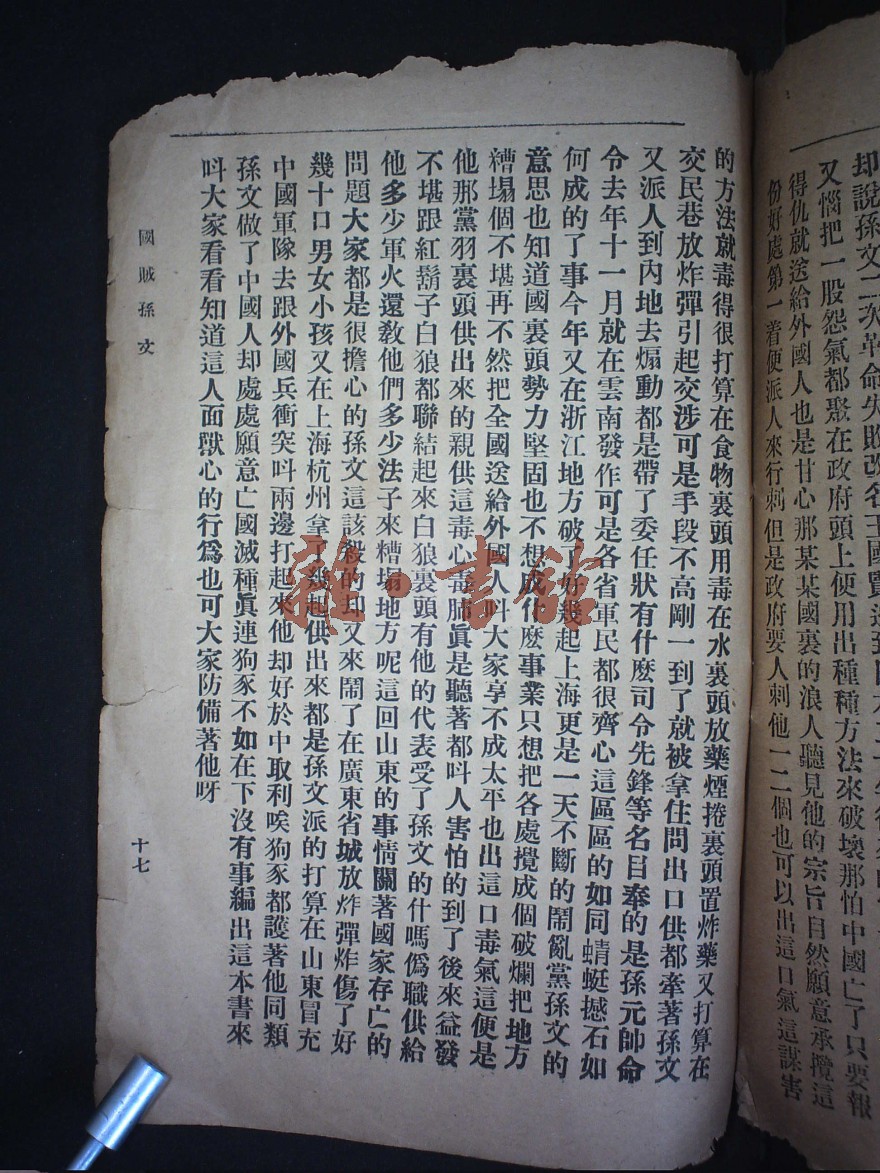 却說孫文二次革命失敗改名
又惱把一股怨氣都聚在政府頭上便用出種種方法來破壞那怕中國亡了只要報
得仇就送給外國人也是甘心那某某國裏的浪人聽見他的宗旨自然願意承攬這
份好處第一着便派人來行刺但是政府要人刺他一二個也可以出這口氣這謀害
的方法就毒得很打算在食物裏頭用毒在水裏頭放藥煙捲裏頭置炸藥又打算在
交民巷放炸彈引起交涉可是手段不高剛一到了就被拿住問出口供都牽著孫文
又派人到內地去煽動都是帶了委任狀有什麽司令先鋒等名目奉的是孫元帥命
令去年十一月就在雲南發作可是各省軍民都很齊心這區區的如同蜻蜓撼石如
何成的了事今年又在浙江地方破了好幾起上海更是一天不斷的鬧亂黨孫文的
意思也知道國裏頭勢力堅固也不想成什麽事業只想把各處攪成個破爛把地方
糟塌個不堪再不然把全國送給外國人呌大家享不成太平也出這口毒氣這便是
他那黨羽裏頭供出來的親供這毒心毒肺眞是聽著都呌人害怕的到了後來益發
不堪跟紅鬍子白狼都聯結起來白狼裏頭有他的代表受了孫文的什嗎僞職供給
他多少軍火還敎他們多少法子來糟塌地方呢這回山東的事情關著國家存亡的
問題大家都是很擔心的孫文這該殺的却又來鬧了在廣東省城放炸彈炸傷了好
幾十口男女小孩又在上海杭州拿了幾起供出來都是孫文派的打算在山東冒充
中國軍隊去跟外國兵衝突呌兩邊打起來他却好於中取利唉狗豕都護著他同類
孫文做了中國人却處處願意亡國滅種眞連狗豕不如在下沒有事編出這本書來
呌大家看看知道這人面獸心的行爲也可大家防備著他呀
國賊孫文
十七
雜·書館